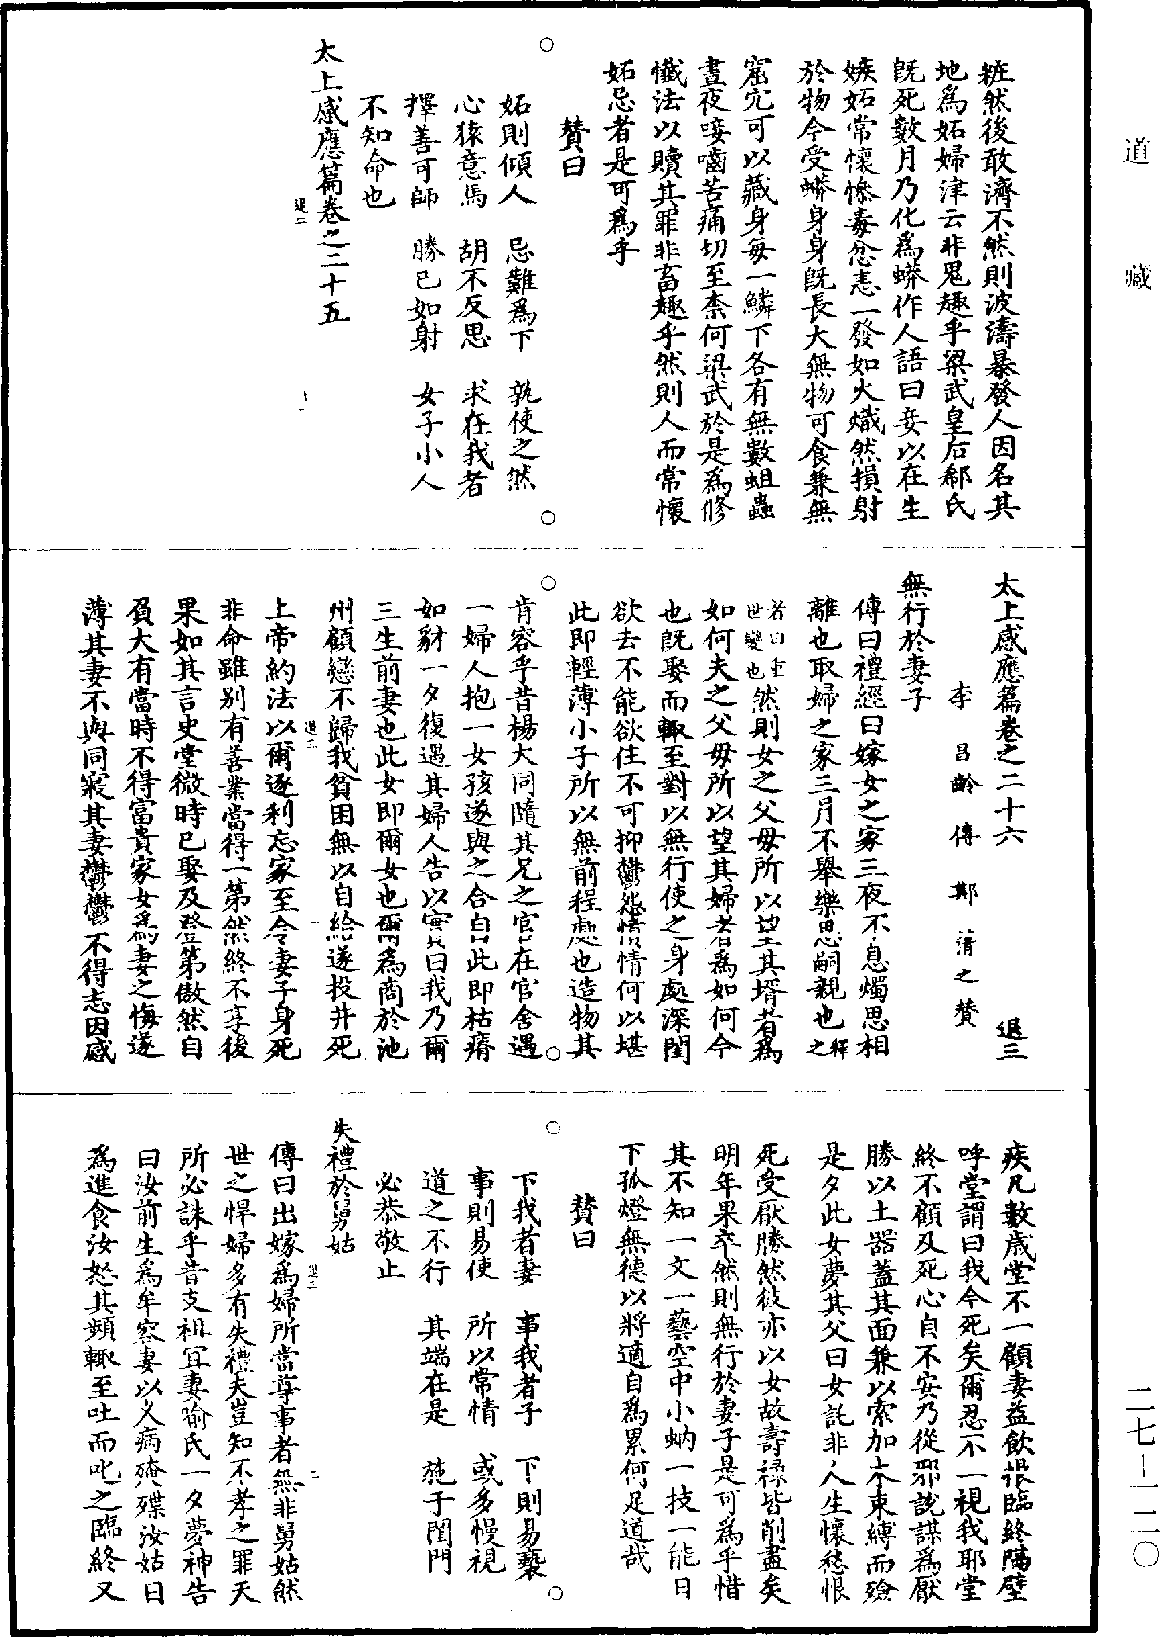 道藏
粧然後敢濟不然則波濤暴發人因名其
地爲妬婦津云非鬼趣乎梁武皇后郗氏
旣死數月乃化爲蟒作人語曰妾以在生
嫉妬常懷慘毒忿恚一發如火熾然損射
於物今受蟒身身旣長大無物可食兼無
窟穴可以藏身每一鱗下各有無數蛆蟲
晝夜唼嚙苦痛切至柰何梁武於是爲修
懺法以贖其罪非畜趣乎然則人而常懷
妬忌者是可爲乎
贊曰
妬則傾人 忌難爲下 孰使之然
心猿意馬 胡不反思 求在我者
擇善可師 勝已如射 女子小人
不知命也
太上感應篇卷之二十五
退二
太上感應篇卷之二十六 退三
李昌齡傳 鄭清之贊
無行於妻子
傳曰禮經曰嫁女之家三夜不息燭思相
離也取婦之家三月不舉樂思嗣親也釋之
者曰重世變也然則女之父母所以望其壻者爲
如何夫之父母所以望其婦者爲如何今
也旣娶而輙至對以無行使之身處深閨
欲去不能欲住不可抑鬱怨情情何以堪
此即輕薄小子所以無前程處也造物其
肯容乎昔楊大同隨其兄之官在官舍遇
一婦人抱一女孩遂與之合自此即枯瘠
如豺一夕復遇其婦人告以實曰我乃爾
三生前妻也此女即爾女也爾爲商於池
州顧戀不歸我貧困無以自給遂投井死
退三
上帝約法以爾逐利忘家至令妻子身死
非命雖别有善業當得一第然終不享後
果如其言史堂微時已娶及登第傲然自
負大有當時不得富貴家女爲妻之悔遂
薄其妻不與同寢其妻鬱鬱不得志因感
疾凡數歲堂不一顧妻益飲恨臨終隔壁
呼堂謂曰我今死矣爾忍不一視我耶堂
終不顧及死心自不安乃從邪説謀爲厭
勝以土器蓋其面兼以索加木束縛而殮
是夕此女夢其父曰女託非人生懷愁恨
死受厭勝然彼亦以女故壽祿皆削盡矣
明年果卒然則無行於妻子是可爲乎惜
其不知一文一藝空中小蚋一技一能日
下孤燈無德以將適自爲累何足道哉
贊曰
下我者妻 事我者子 下則易褻
事則易使 所以常情 或多慢視
道之不行 其端在是 施于閨門
必恭敬止
失禮於舅姑
退三
傳曰出嫁爲婦所當尊事者無非舅姑然
世之悍婦多有失禮夫豈知不孝之罪天
所必誅乎昔支祖宜妻喻氏一夕夢神告
曰汝前生爲牟容妻以久病殗殜汝姑日
爲進食汝怒其頻輙至吐而叱之臨終又
二七—一二〇